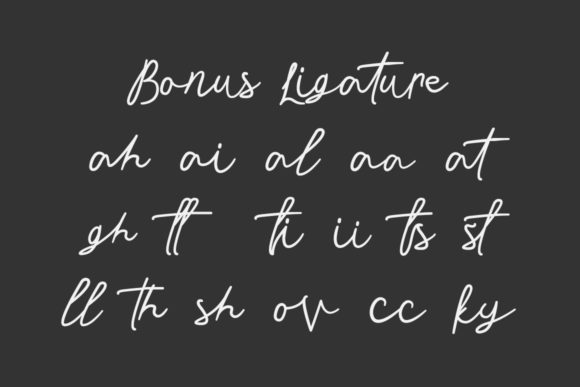 Bonus Ligature
ah ai al aa at
gh tt ti ii ts st
ll th sh ov cc ky